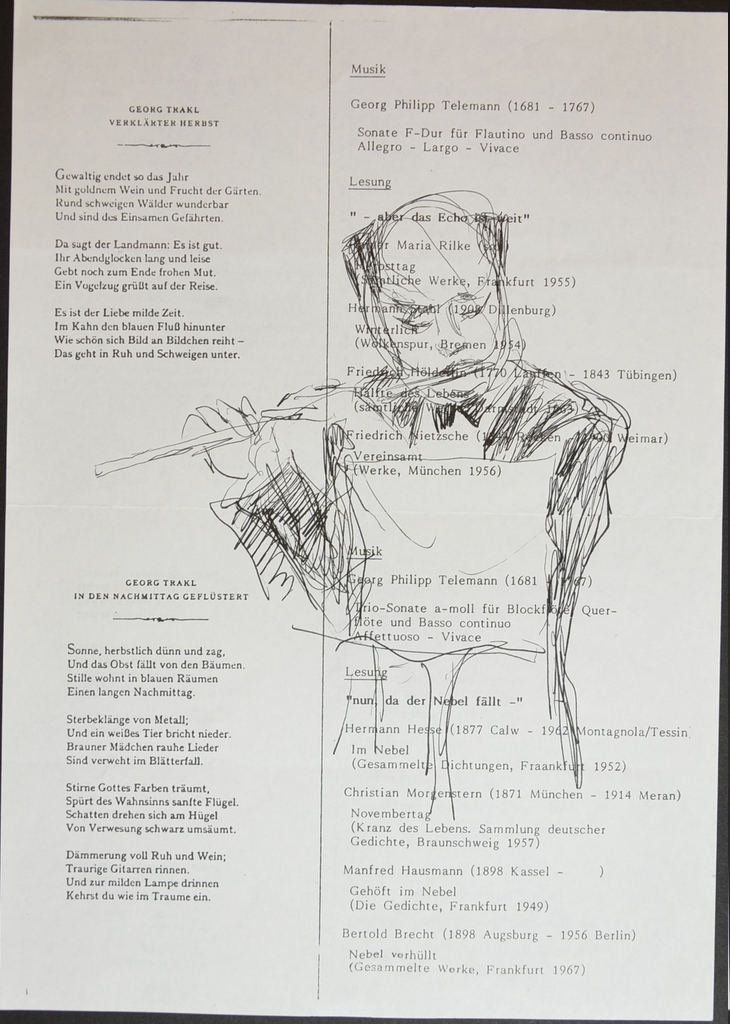 GEORG TRAKL
VERKLÄRTER HERBST
Gewaltig endet so das Jahr
Mit goldnem Wein und Frucht der Gärten.
Rund schweigen Wälder wunderbar
Und sind des Einsamen Gefährten.
Da sagt der Landmann: Es ist gut.
Ihr Abendglocken lang und leise
Gebt noch zum Ende frohen Mut.
Ein Vogelzug grüßt auf der Reise.
Es ist der Liebe milde Zeit.
Im Kahn den blauen Fluß hinunter
Wie schön sich Bild an Bildchen reiht –
Das geht in Ruh und Schweigen unter.
GEORG TRAKL
IN DEN NACHMITTAG GEFLÜSTERT
Sonne, herbstlich dünn und zag,
Und das Obst fällt von den Bäumen.
Stille wohnt in blauen Räumen
Einen langen Nachmittag.
Sterbeklänge von Metall;
Und ein weißes Tier bricht nieder.
Brauner Mädchen rauhe Lieder
Sind verweht im Blätterfall.
Stirne Gottes Farben träumt,
Spürt des Wahnsinns sanfte Flügel.
Schatten drehen sich am Hügel
Von Verwesung schwarz umsäumt.
Dämmerung voll Ruh und Wein;
Traurige Gitarren rinnen.
Und zur milden Lampe drinnen
Kehrst du wie im Traume ein.
Musik
Georg Philipp Telemann (1681 - 1767)
Sonate F-Dur für Flautino und Basso continuo
Allegro - Largo - Vivace
Lesung
" - aber das Echo ist weit"
Rainer Maria Rilke
Herbsttag
(Sämtliche Werke, Frankfurt 1955)
Hermann Stahl (1908 Dillenburg)
Winterlich
(Wolkenspur, Bremen 1954)
Friedrich Hölderlin (1770 Lauffen - 1843 Tübingen)
Hälfte des Lebens
(sämtliche Darmstadt
Friedrich Nietzsche Weimar)
Vereinsamt
(Werke, München 1956)
Musik
Georg Philipp Telemann (1681 - 1767)
Trio-Sonate a-moll für Blockflöte, Quer-
flöte und Basso continuo
Affettuoso - Vivace
Lesung
"nun, da der Nebel fällt -"
Hermann Hesse (1877 Calw - 1962 Montagnola/Tessin
Im Nebel
(Gesammelte Dichtungen, Fraankfurt 1952)
Christian Morgenstern (1871 München - 1914 Meran)
Novembertag
(Kranz des Lebens. Sammlung deutscher
Gedichte, Braunschweig 1957)
Manfred Hausmann (1898 Kassel - )
Gehöft im Nebel
(Die Gedichte, Frankfurt 1949)
Bertold Brecht (1898 Augsburg - 1956 Berlin)
Nebel verhüllt
(Gesammelte Werke, Frankfurt 1967)